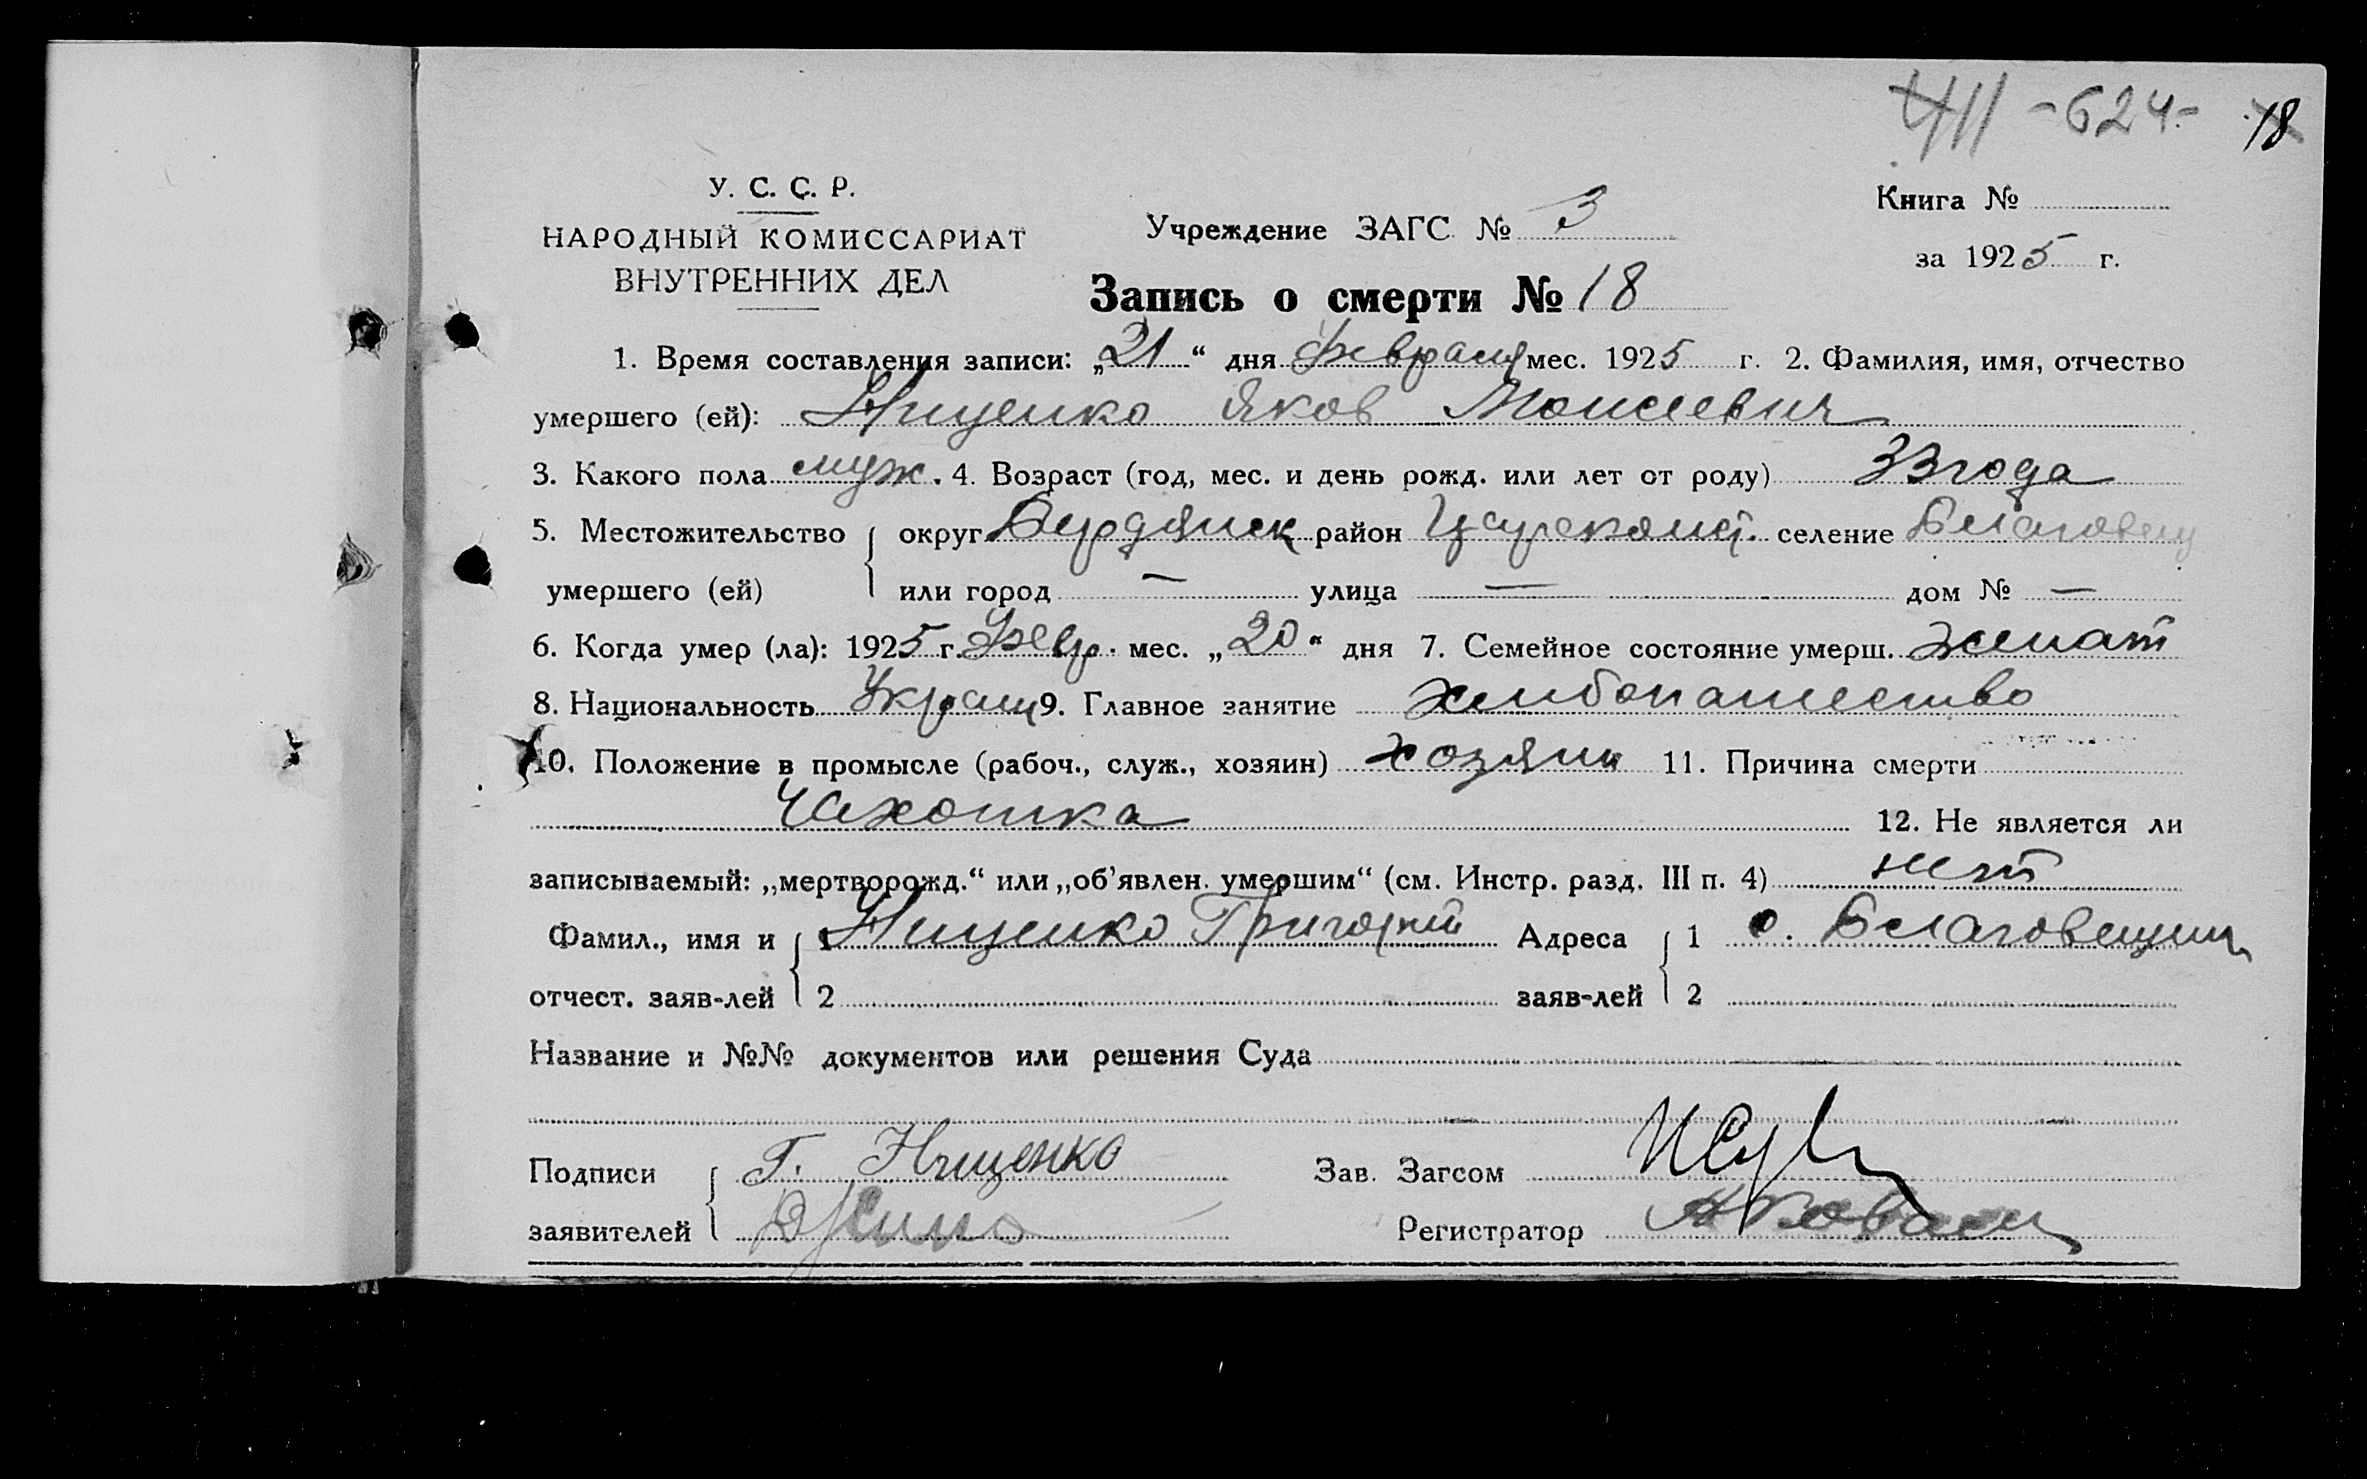 -624- 18
У. С. С. Р.
НАРОДНЫЙ КОМИССАРИАТ
ВНУТРЕННИХ ДЕЛ
Учреждение ЗАГС № 3
Книга №
за 1925 г.
Запись о смерти № 18
1. Время составления записи: „21“ дня февраля мес. 1925 г. 2. Фамилия, имя, отчество
умершего (ей): Нищенко Яков Моисеевич
3. Какого пола муж. 4. Возраст (год, мес. и день рожд. или лет от роду) 33 года
5. Местожительство округ Бердянск район селение Благовещ
умершего (ей) или город — улица — дом № —
6. Когда умер (ла): 1925 г. Февр. мес. „20“ дня 7. Семейное состояние умерш. женат
8. Национальность Украин 9. Главное занятие хлибопашество
10. Положение в промысле (рабоч., служ., хозяин) хозяин 11. Причина смерти
Чахотка 12. Не является ли
записываемый: „мертворожд.“ или „об’явлен. умершим“ (см. Инстр. разд. III п. 4) нет
Фамил., имя и 1 Нищенко Григорий Адреса 1 с. Благовещин
отчест. заяв-лей 2 заяв-лей 2
Название и №№ документов или решения Суда
Подписи Г. Нищенко Зав. Загсом
заявителей Регистратор